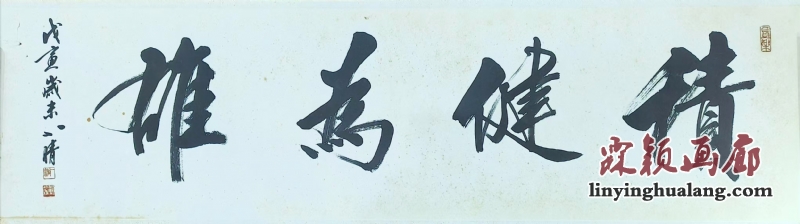 積健為雄
戊寅歲末
霖颖画廊
linyinghualang.com